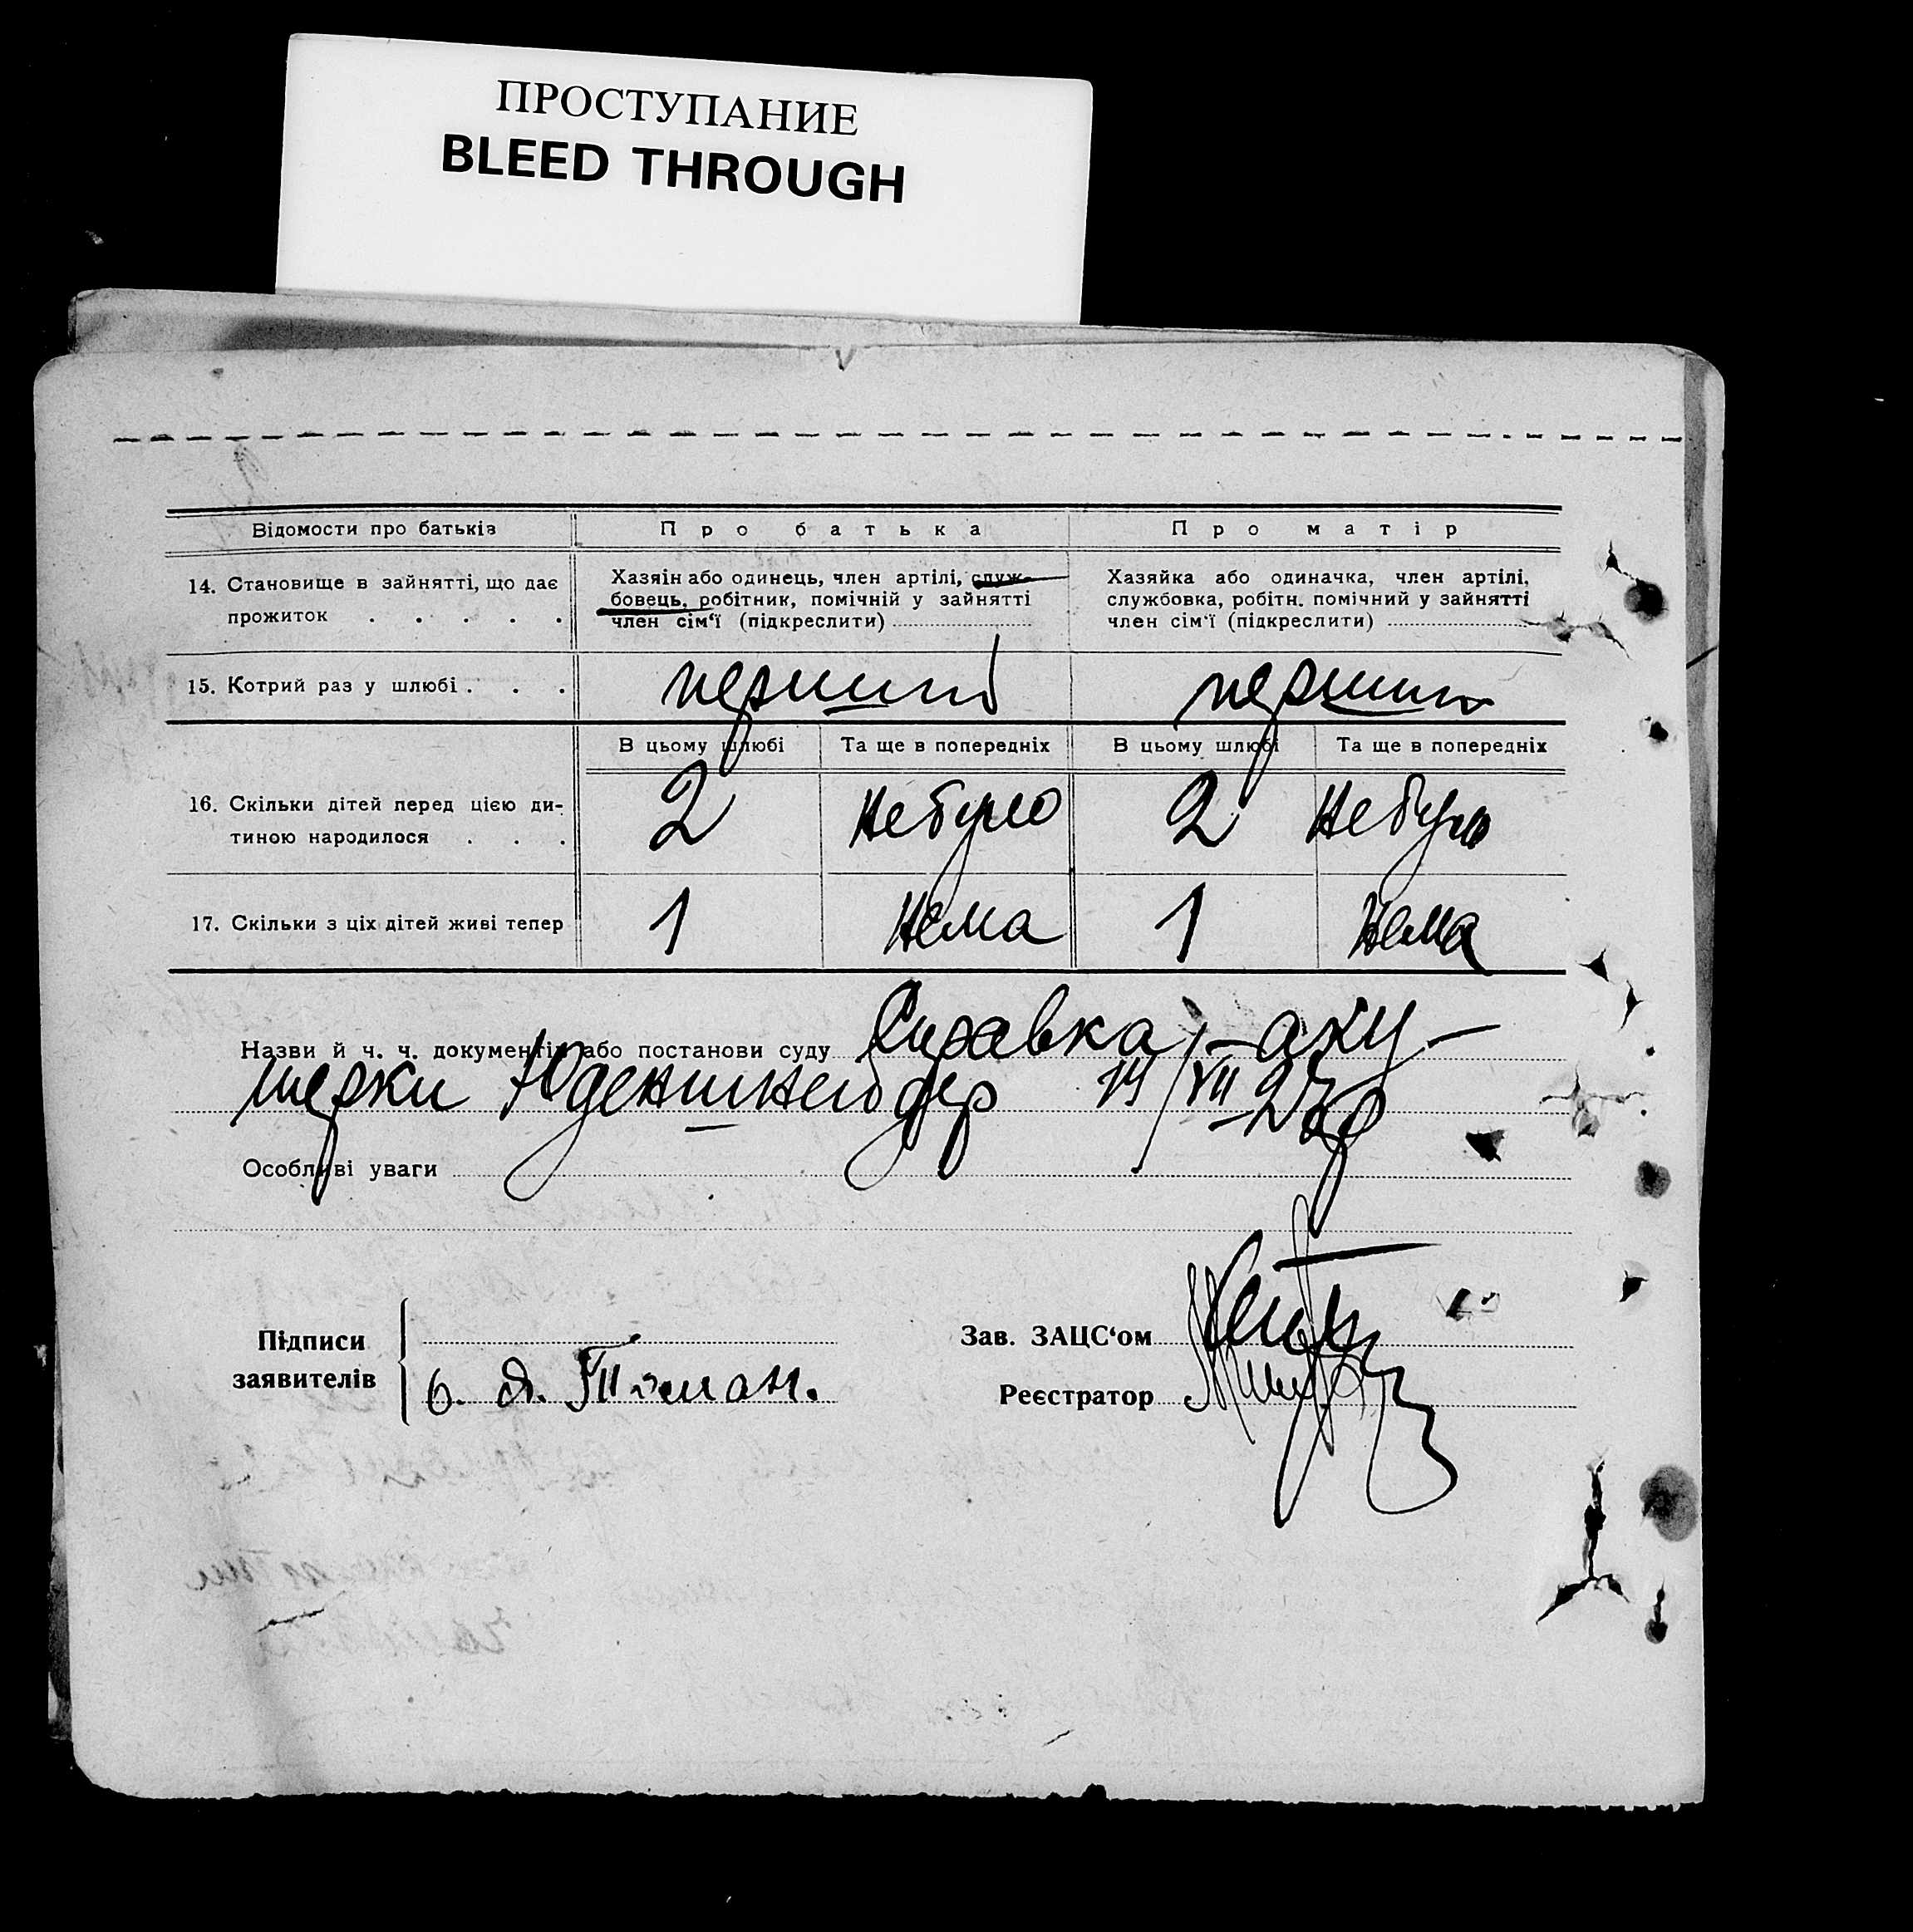 ПРОСТУПАНИЕ
BLEED THROUGH
Відомости про батьків Про батька Про матір
14. Становище в зайнятті, що дає прожиток . . . . .
Хазяїн або одинець, член артілі, служ-
бовець, робітник, помічній у зайнятті
член сім'ї (підкреслити)
Хазяйка або одиначка, член артілі,
службовка, робітн. помічний у зайнятті
член сім'ї (підкреслити)
15. Котрий раз у шлюбі . . . перший перший
В цьому шлюбі Та ще в попередніх В цьому шлюбі Та ще в попередніх
16. Скільки дітей перед цією ди-
тиною народилося . . . 2 не було 2 не було
17. Скільки з ціх дітей живі тепер 1 нема 1 нема
Назви й ч. ч. документів або постанови суду Справка аку-
шерки 14/VII-27р
Особливі уваги
Підписи
заявителів
Зав. ЗАЦС'ом
Реєстратор